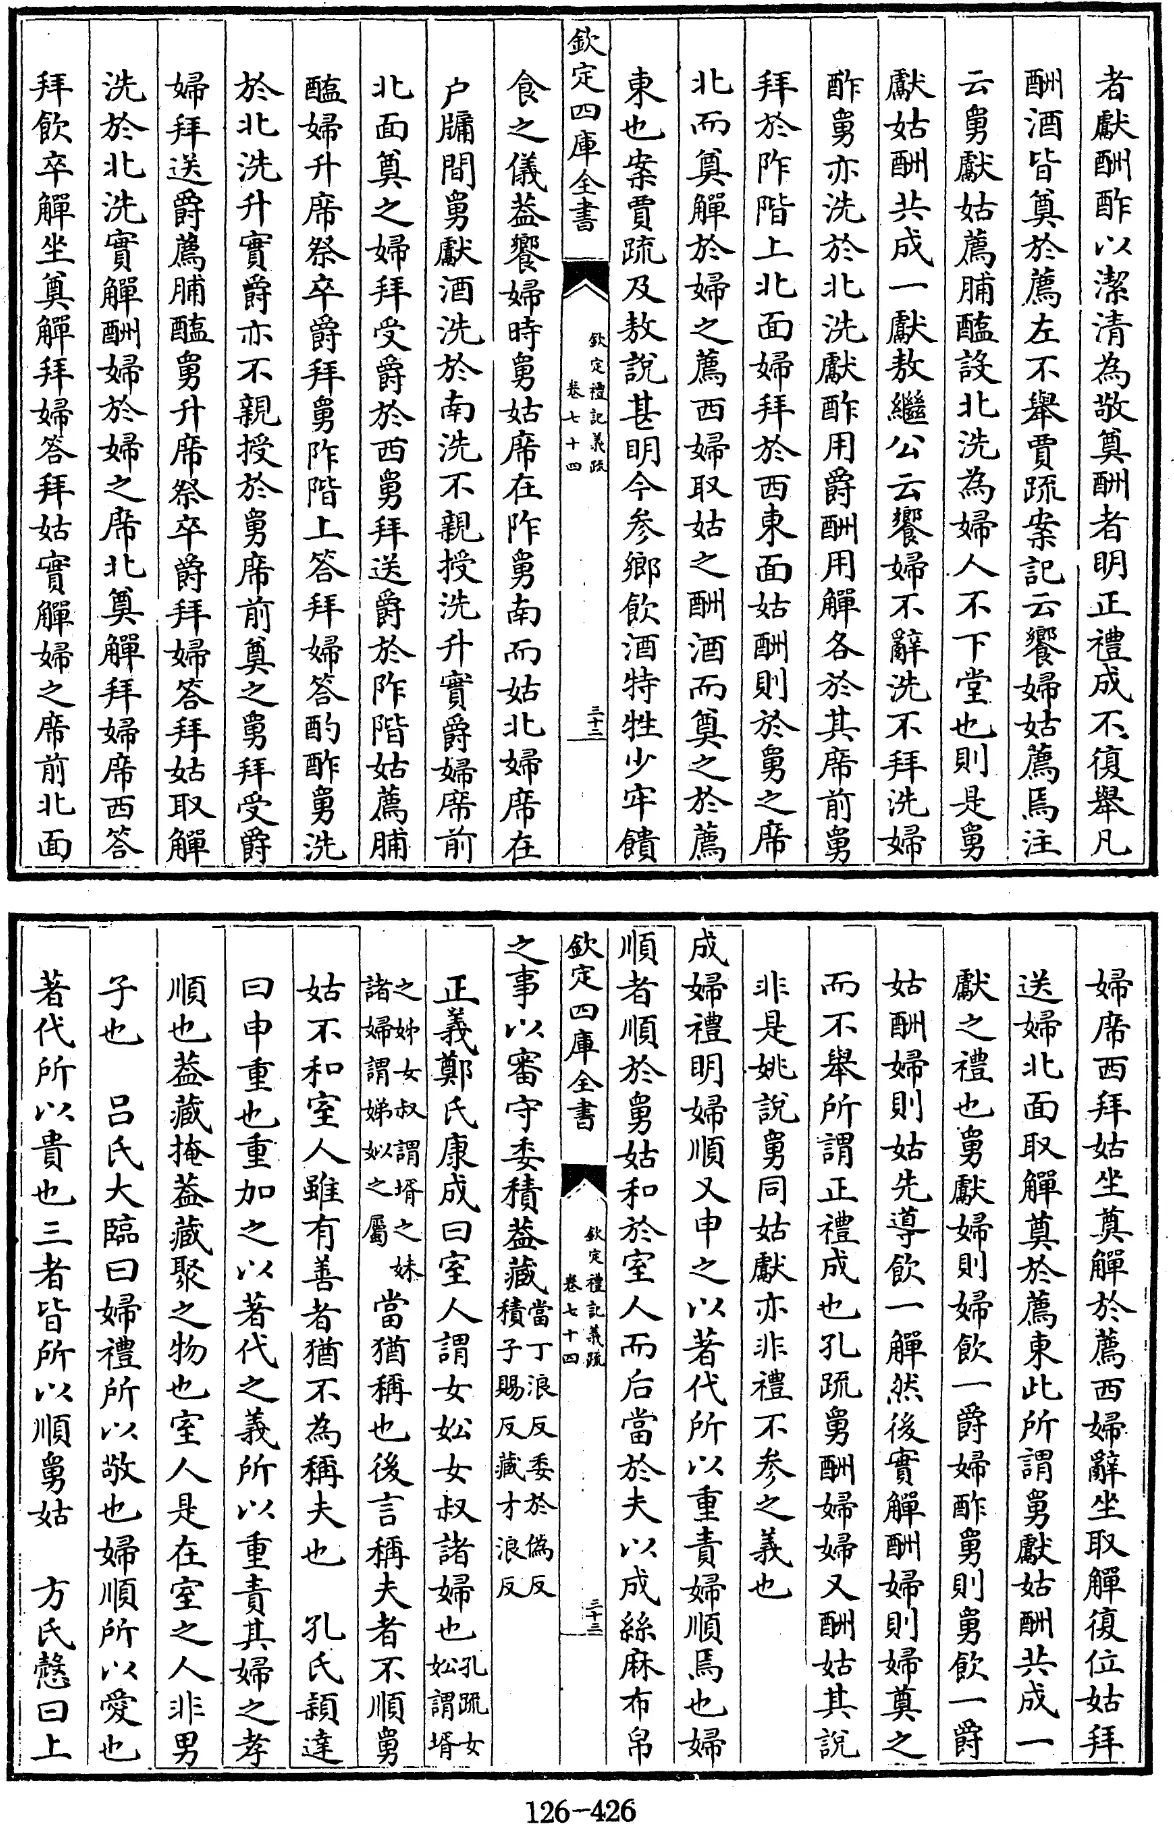 者獻酬酢以潔清為敬奠酬者明正禮成不復舉凡
酬酒皆奠於薦左不舉賈疏案記云饗婦姑薦焉注
云舅獻姑薦脯醢設北洗為婦人不下堂也則是舅
獻姑酬共成一獻敖繼公云饗婦不辭洗不拜洗婦
酢舅亦洗於北洗獻酢用爵酬用觶各於其席前舅
拜於阼階上北面婦拜於西東面姑酬則於舅之席
北而奠觶於婦之薦西婦取姑之酬酒而奠之於薦
東也案賈疏及敖說甚明今參鄉飲酒特牲少牢饋
欽定四庫全書
欽定禮記義疏
卷七十四
三十三
食之儀葢饗婦時舅姑席在阼舅南而姑北婦席在
户牖間舅獻酒洗於南洗不親授洗升實爵婦席前
北面奠之婦拜受爵於西舅拜送爵於阼階姑薦脯
醢婦升席祭卒爵拜舅阼階上答拜婦答酌酢舅洗
於北洗升實爵亦不親授於舅席前奠之舅拜受爵
婦拜送爵薦脯醢舅升席祭卒爵拜婦答拜姑取觶
洗於北洗實觶酬婦於婦之席北奠觶拜婦席西答
拜飲卒觶坐奠觶拜婦答拜姑實觶婦之席前北面
婦席西拜姑坐奠觶於薦西婦辭坐取觶復位姑拜
送婦北面取觶奠於薦東此所謂舅獻姑酬共成一
獻之禮也舅獻婦則婦飲一爵婦酢舅則舅飲一爵
姑酬婦則姑先導飲一觶然後實觶酬婦則婦奠之
而不舉所謂正禮成也孔疏舅酬婦婦又酬姑其說
非是姚說舅同姑獻亦非禮不參之義也
成婦禮明婦順又申之以著代所以重責婦順焉也婦
順者順於舅姑和於室人而后當於夫以成絲麻布帛
欽定四庫全書
欽定禮記義疏
卷七十四
三十三
之事以審守委積葢藏當丁浪反委於偽反積子賜反藏才浪反
正義鄭氏康成曰室人謂女妐女叔諸婦也孔疏女妐謂壻
之姊女叔謂壻之妹諸婦謂娣姒之屬當猶稱也後言稱夫者不順舅
姑不和室人雖有善者猶不為稱夫也　孔氏穎達
曰申重也重加之以著代之義所以重責其婦之孝
順也葢藏掩葢藏聚之物也室人是在室之人非男
子也　呂氏大臨曰婦禮所以敬也婦順所以愛也
著代所以貴也三者皆所以順舅姑　方氏慤曰上
126-426